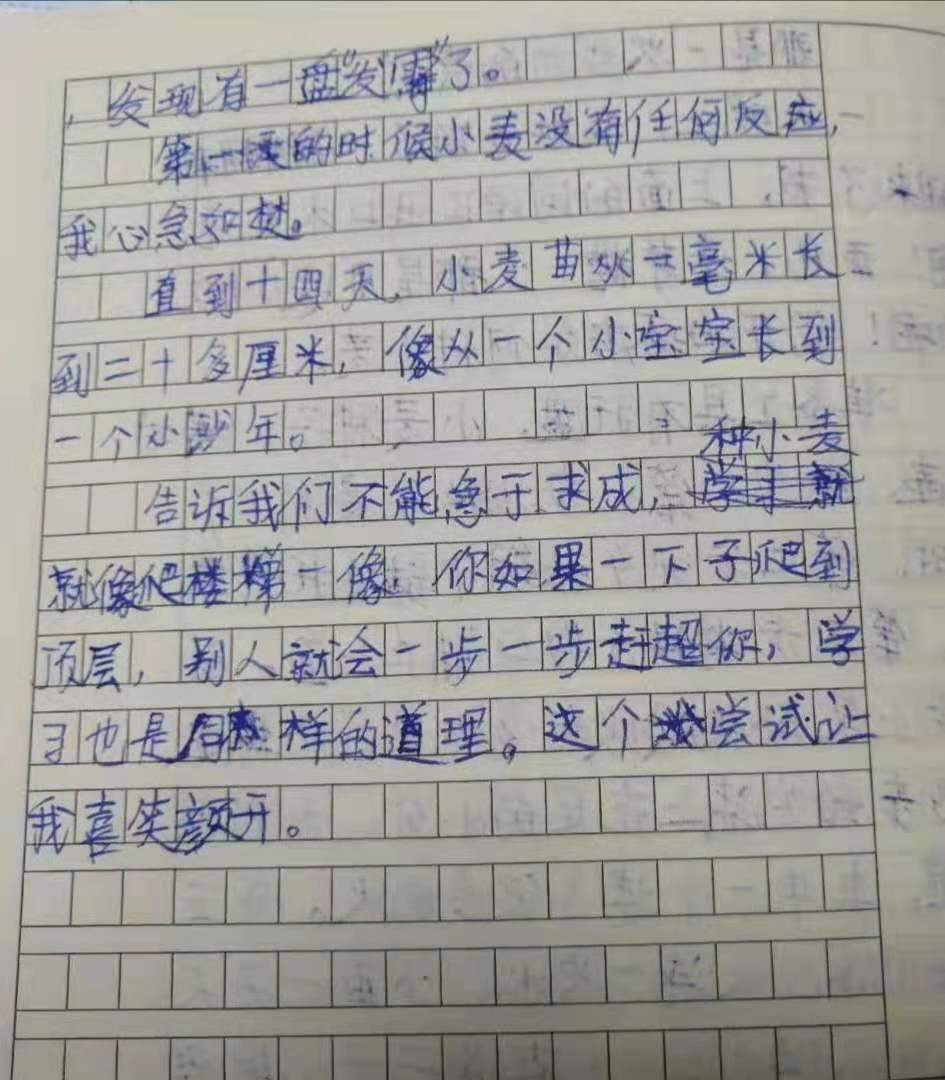 ，发现有一盘“发霉”了。
第一天的时候小麦没有任何反应，
我心急如焚。
直到十四天，小麦苗从毫米长
到二十多厘米，像从一个小宝宝长到
一个小少年。
种小麦
告诉我们不能急于求成，
就像爬楼梯一像，你如果一下子爬到
顶层，别人就会一步一步赶超你，学
习也是同样的道理。这个尝试让
我喜笑颜开。